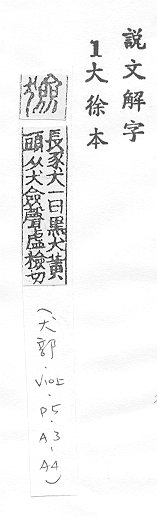 説文解字
1大徐本
獫
長喙犬一曰黑犬黃
頭从犬僉聲虛檢切
(犬部·V10上·P5·A3-A4)